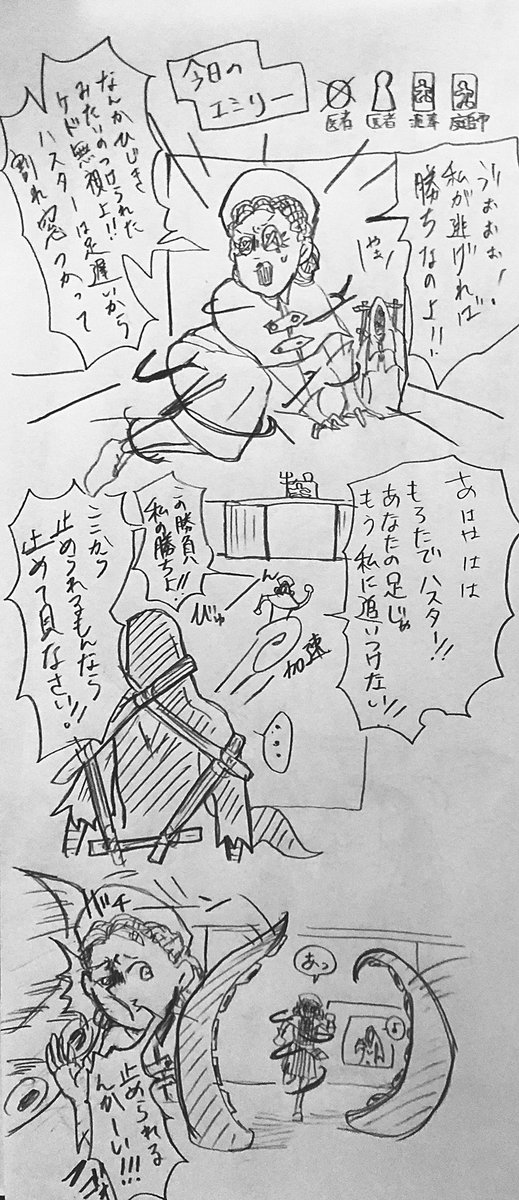 今日の
エミリー
医者
医者
庭師
うぉぉぉぉ!!
私が逃げれば
勝ちなのよ!!
やぁ
なんかひじき
みたいのつけられた
ケド無視よ!!
ハスターは足遅いから
割れ窓つかって
あはははは
もろたでハスター!!
あなたの足じゃ
もう私に追いつけない!!
びゅん
加速
この勝負
私の勝ちよ!!
ここから
止められるもんなら
止めて見なさい!!
…
あっ
止められる
んかーい!!!